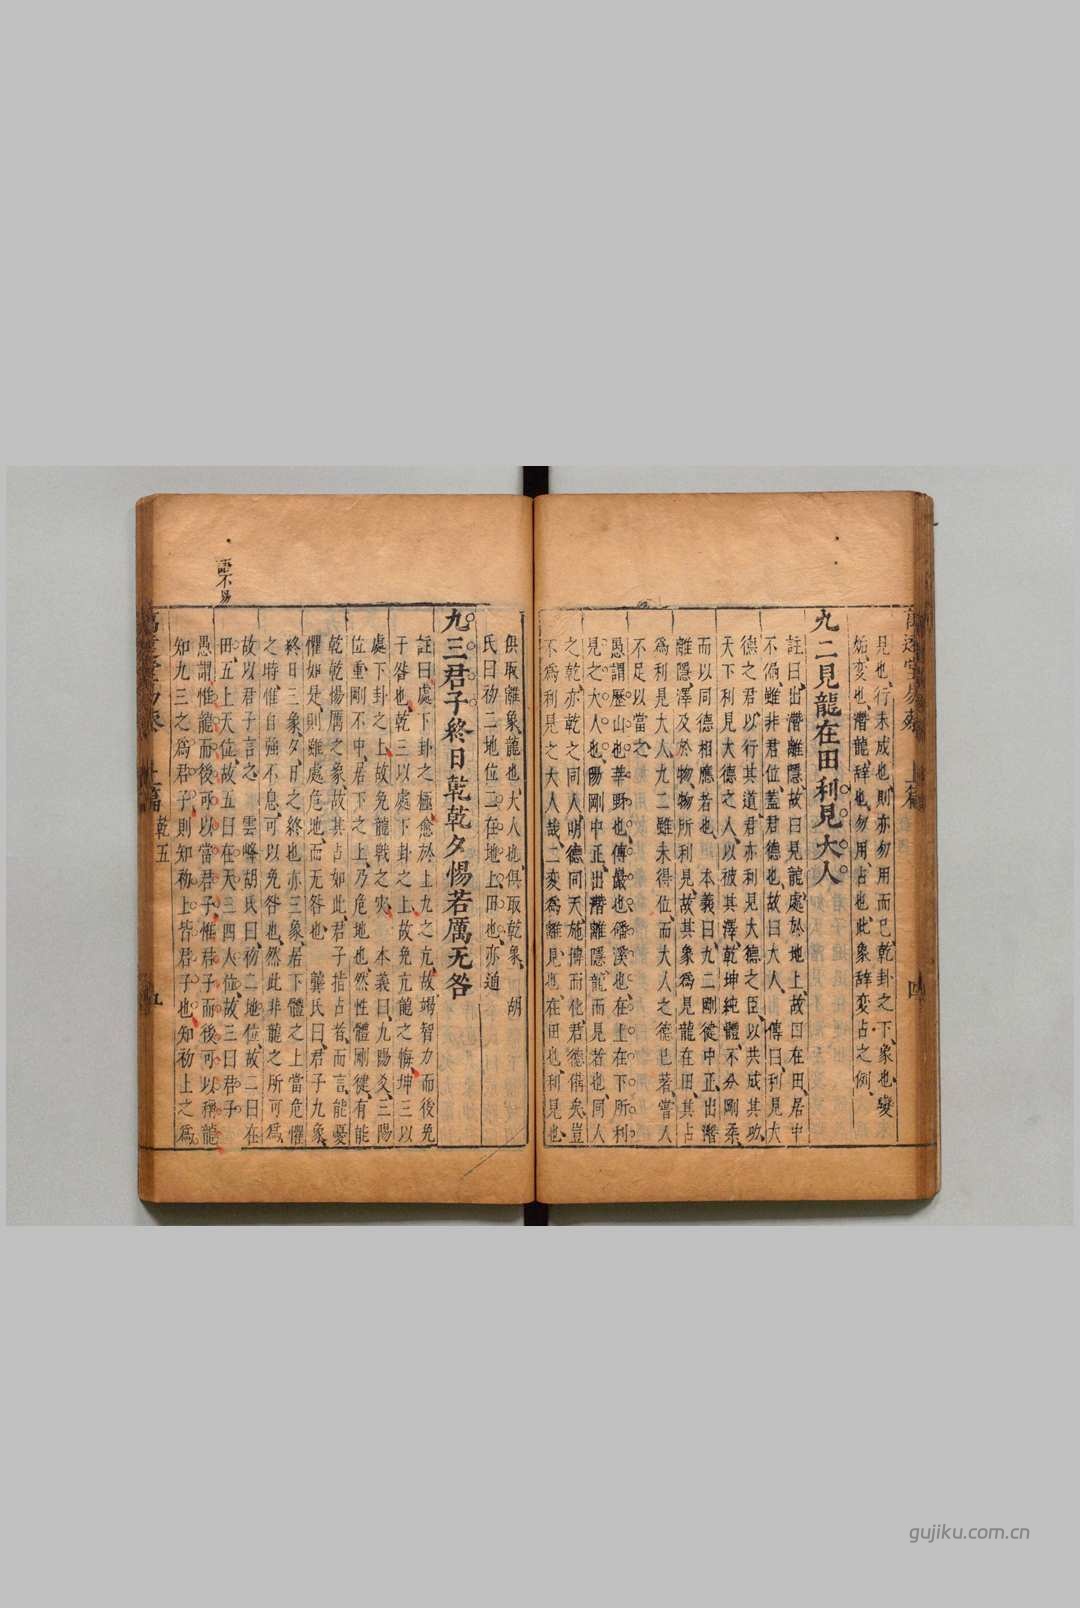 見也行未成也則亦勿用而已乾卦之下象也變
始変也潛龍辞也勿用占也此象辞変占之例
九二見龍在田利見大人
註曰出潛離隱故曰見龍處於地上故曰在田居中
不偏雖非君位蓋君德也故曰大人　傳曰利見大
德之君以行其道君亦利見大德之臣以共成其功
天下利見大德之人以被其澤乾坤純體不分剛柔
而以同德相應若也　本義曰九二剛徤中正出潛
離隱澤及於物物所利見故其象爲見龍在田其占
爲利見大人九二雖未得位而大人之德已著常人
不足以當之
愚謂歷山也莘野也傅巖也磻溪也在上在下所利
見之大人也陽剛中正出潛離隱龍而見者也同人
之乾亦乾之同人明德同天施博而化君德偹矣豈
不爲利見之大人哉二変爲離見也在田也利見也
俱取離象龍也大人也俱取乾象　胡
氏曰初二地位二在地上田也亦通
九三君子終日乾乾夕惕若厲无咎
註曰處下卦之極愈於上九之亢故竭智力而後免
于咎也乾三以處下卦之上故免亢龍之悔坤三以
處下卦之上故免龍戰之灾　本義曰九陽爻三陽
位重剛不中居下之上乃危地也然性體剛徤有能
乾乾惕厲之象故其占如此君子指占者而言能憂
懼如是則雖處危地而无咎也　龔氏曰君子九象
終日三象夕日之終也亦三象若下體之上當危懼
之時惟自強不息可以免咎也然此非龍之所可爲
故以君子言之　雲峰胡氏曰初二地位故二曰在
田五上天位故五曰在天三四人位故三曰君子
愚謂惟龍而後可以當君子惟君子而後可以稱龍
知九三之爲君子則知初上皆君子也知初上之爲
語不易
上篇
四
上篇
乾五
五
gujiku.com.cn